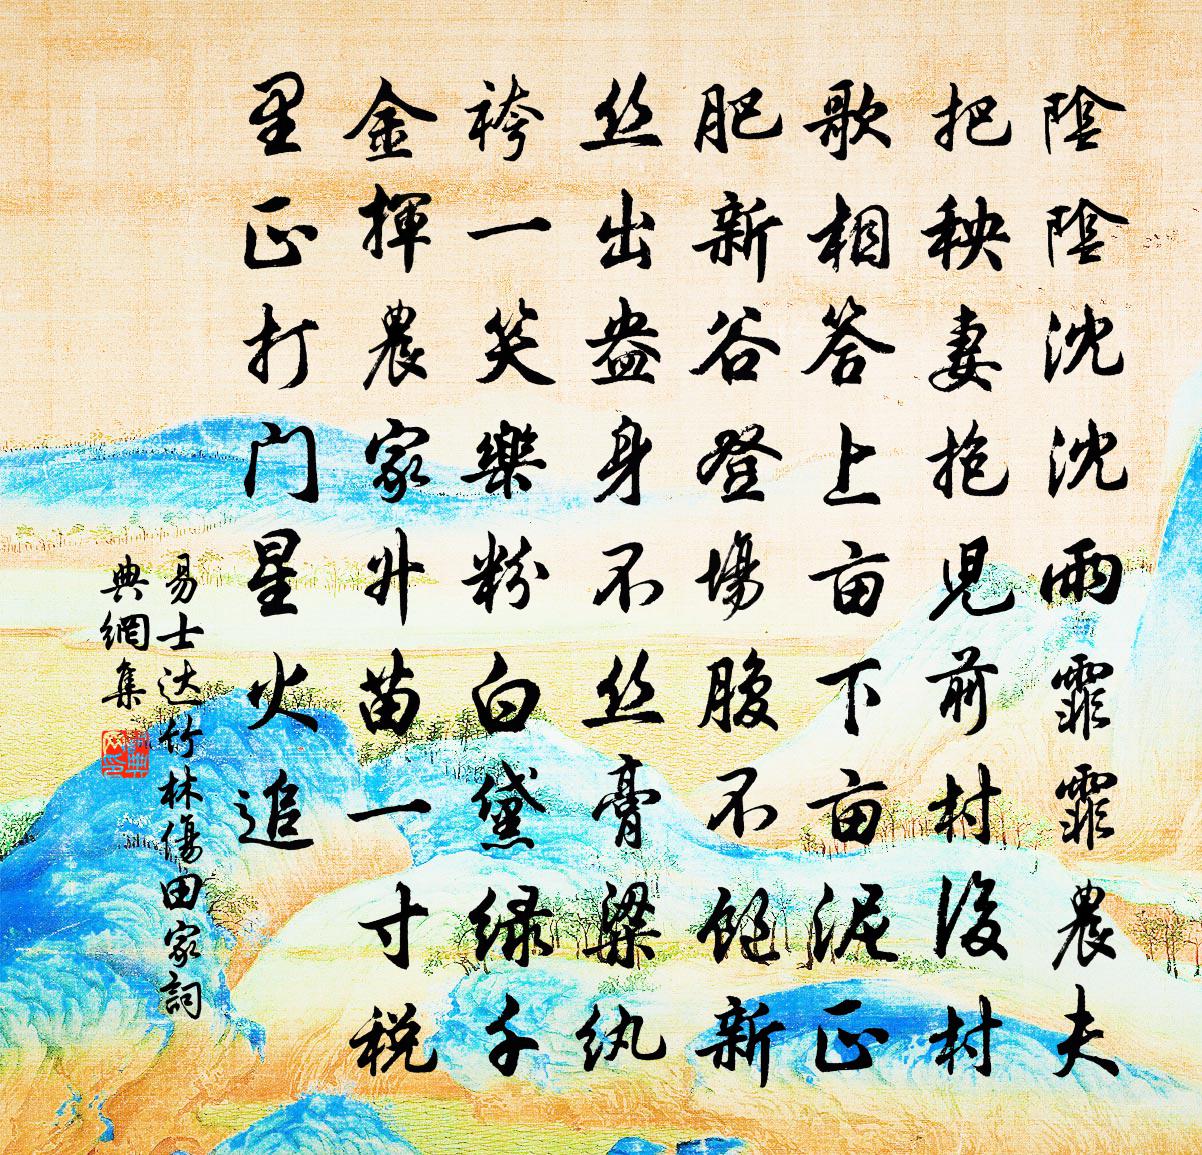 陰陰沈沈雨霏霏農夫
把秧妻抱児前村後村
歌相答上亩下亩泥正
肥新谷登場腹不飽新
丝出盎身不丝膏粱纨
袴一笑樂粉白黛绿千
金揮農家升苗一寸税
里正打门星火追
易士达竹林傷田家詞
典網集